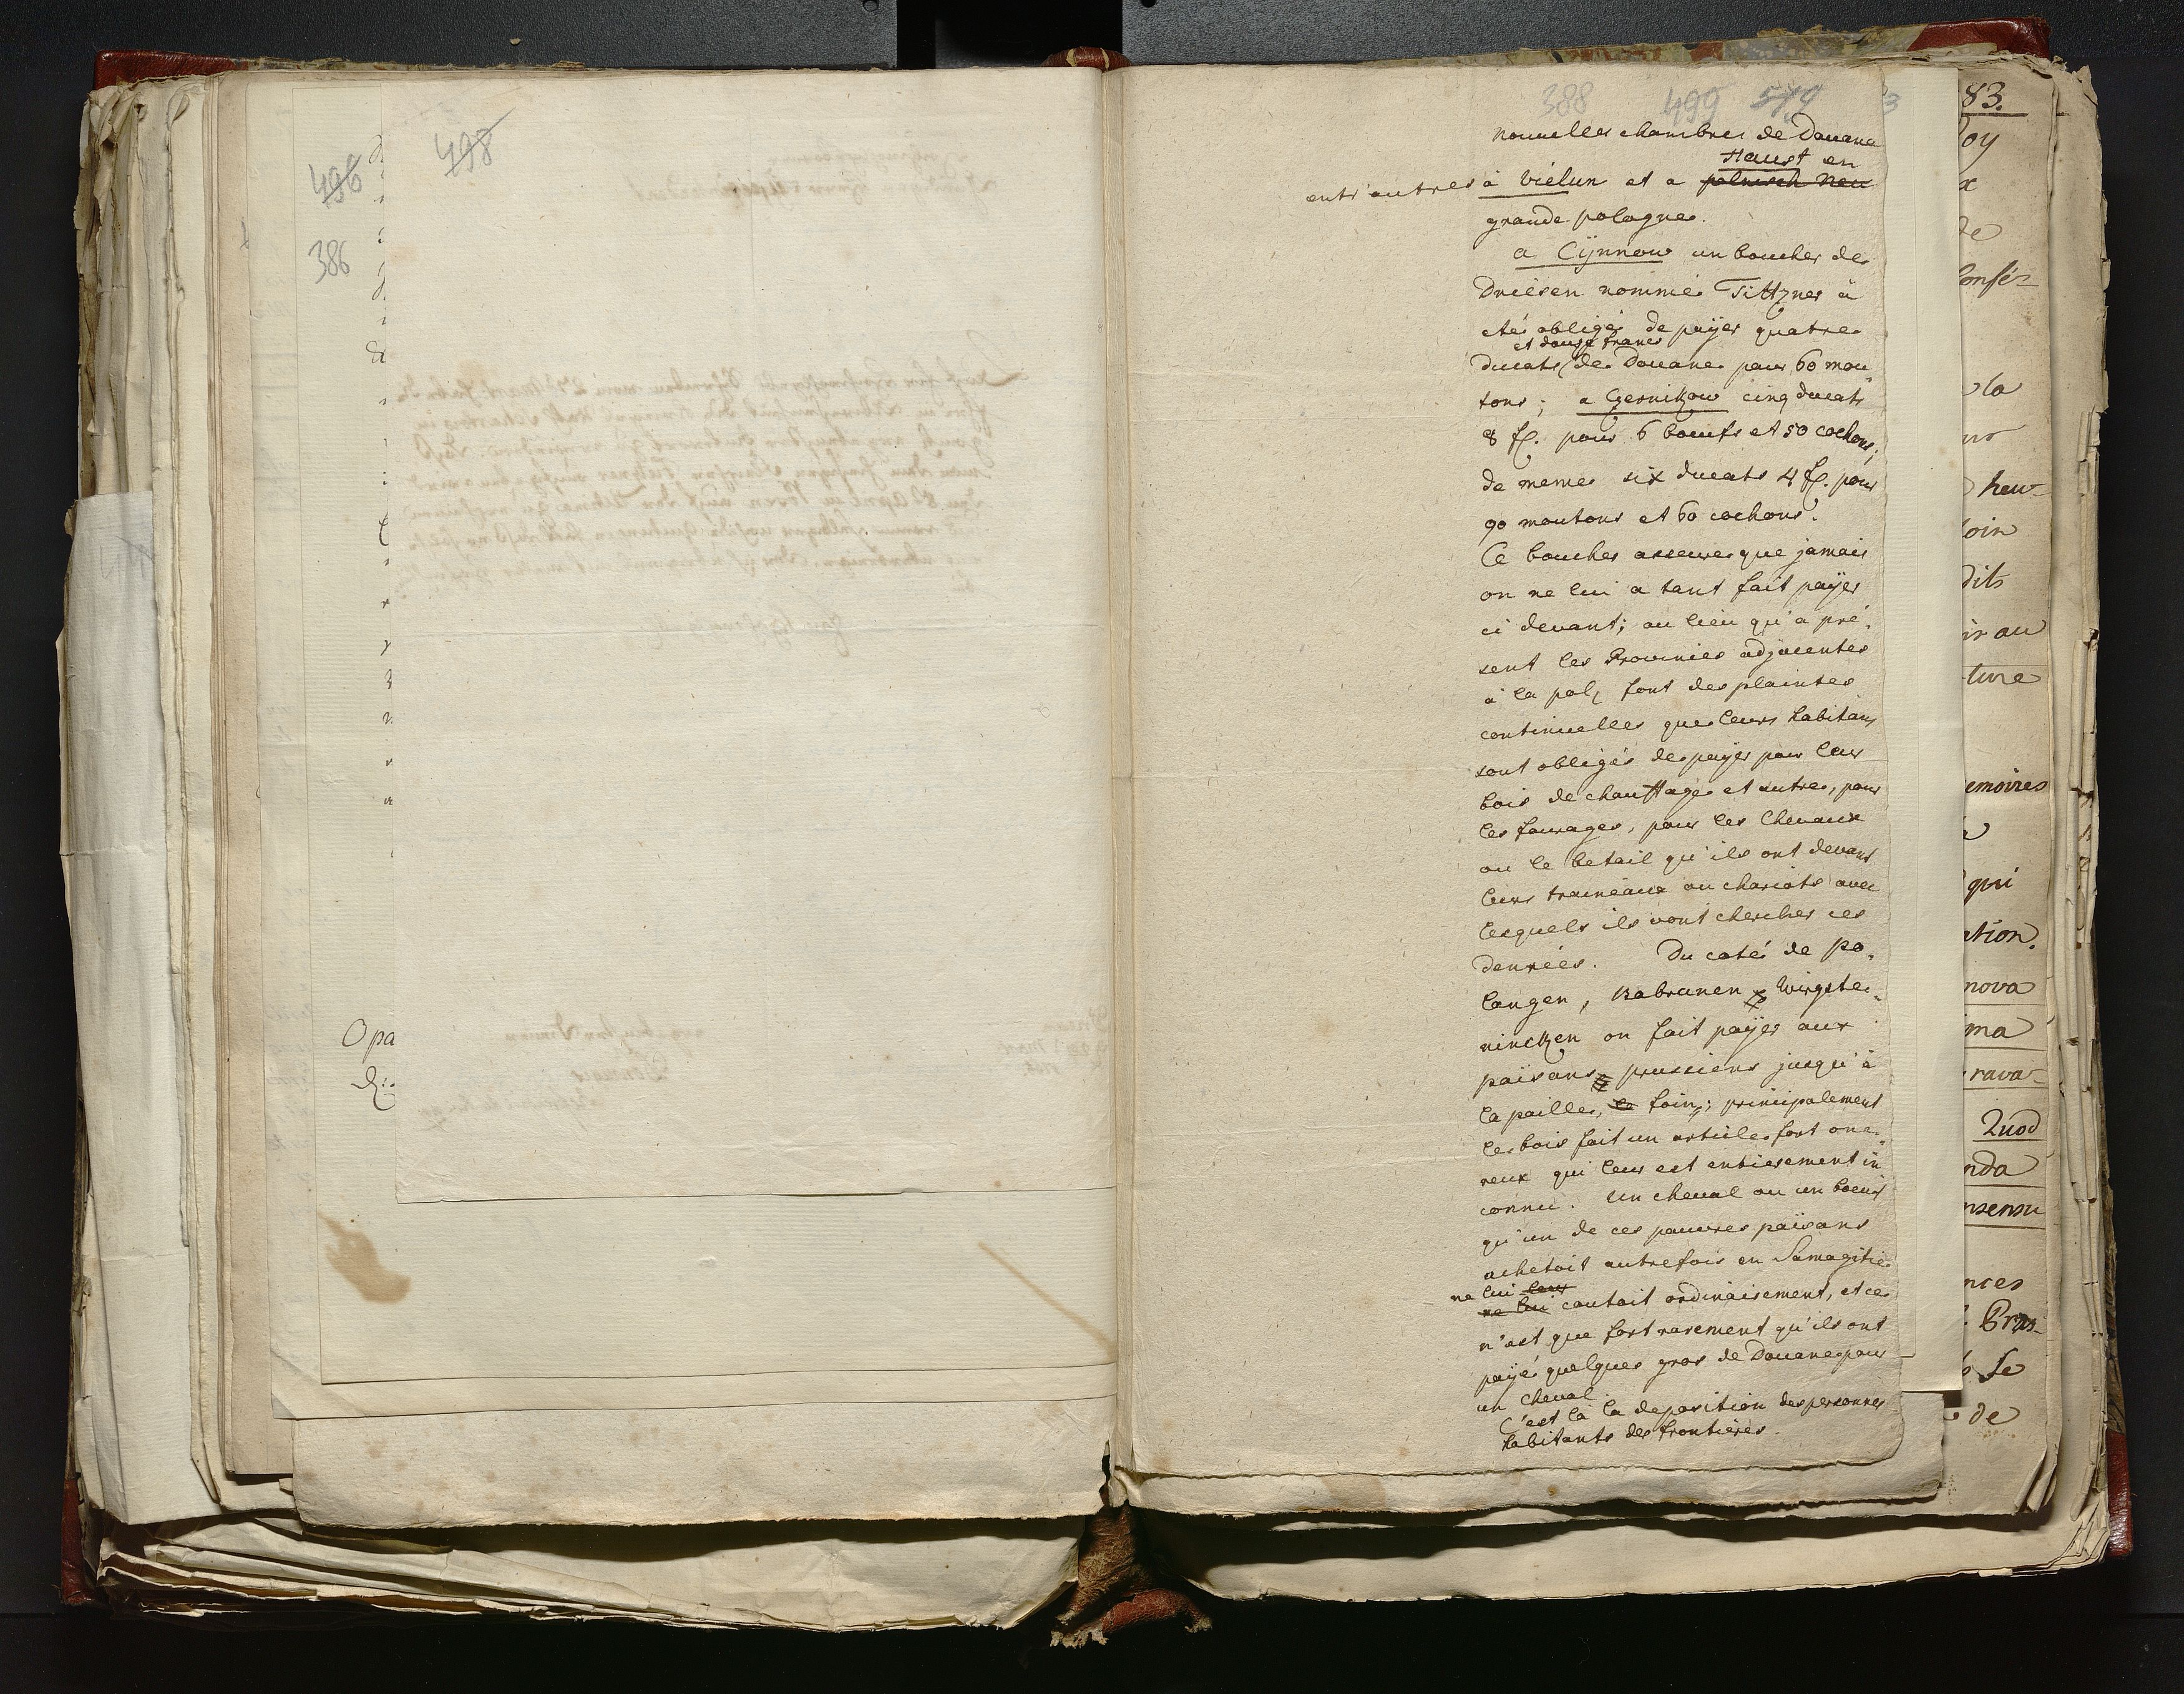 496
386
498
Opa
388 499 579
nouvelles chambres de Douane
Haust en
entr'autres à Viélun et a polnisch Neu
grande pologne.
a Cÿnnow un boucher de
Driésen nommé Tittzner à
eté obligé de paÿer quatre
et douze francs
ducats de Douane pour 60 mou
tons; a Czernikow cinq ducats
8 f. pour 6 boeufs et 50 cochons;
de meme six ducats 4 f. pour
90 moutons et 60 cochons.
Ce boucher asseure que jamais
on ne lui a tant fait paÿer
ci devant; au lieu qu'a pré-
sent les Provinces adjacentes
à la pol, font des plaintes
continuelles que leurs habitans
sont obligés de payer pour leur
bois de chauffage et autre, pour
les fourages, pour les Chevaux
ou le betail qu'ils ont devant
leurs traineaux ou chariots avec
lesquels ils vont chercher ces
denrées. Du coté de po-
langen, Kabrunen Wirgste-
ninckzen on fait paÿer aux
païsans prussiens jusqu'à
la paille, le foin; principalement
le bois fait un article fort one-
reux qui leur est entierement in
connu. Un cheval ou un boeuf
qu'un de ces pauvres païsans
achetoit autrefois en Samagitie
ne lui leur
ne lui coutait ordinairement, et ce
n'est que fort rarement qu'ils ont
paÿé quelques gros de Douane pour
un cheval.
C'est là la deposition des personnes
habitants des frontières.
83.
oy
x
de
Confé-
la
heu-
oin
dits
ir au
ture
emoires
qui
ation.
nova
ima
rava-
Quod
nda
nsensu
nces
Bran-
Se
de